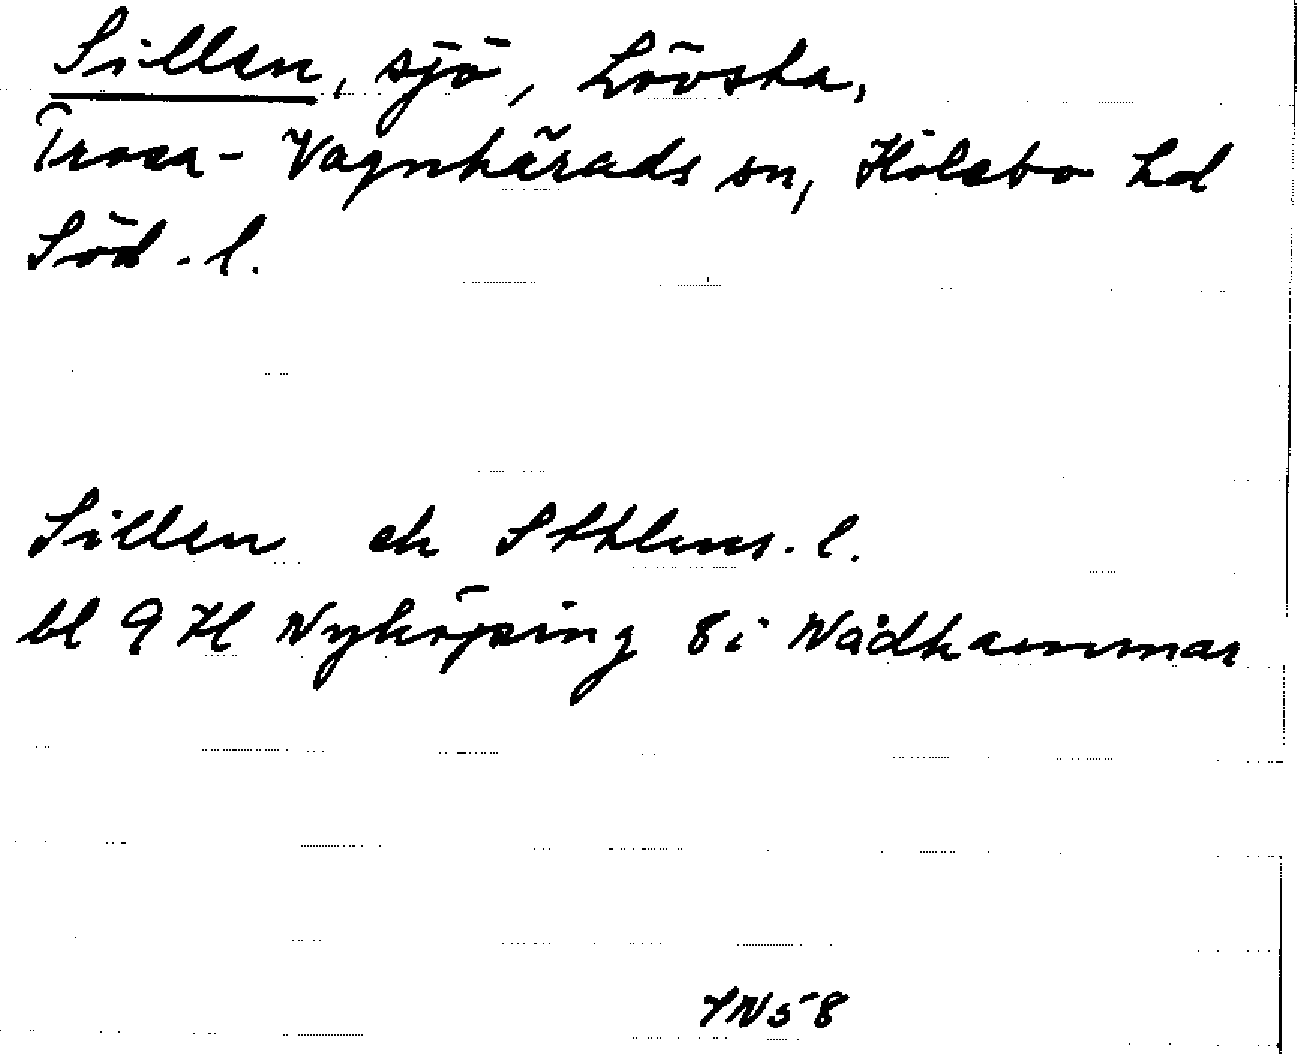 Sillen, sjö, Lövsta,
Trosa-Vagnhärads sn, Hölebo hd
Söd. l.
Sillen ek Sthlms. l.
bl 9 H Nyköping 8 i Nådhammar
YN58